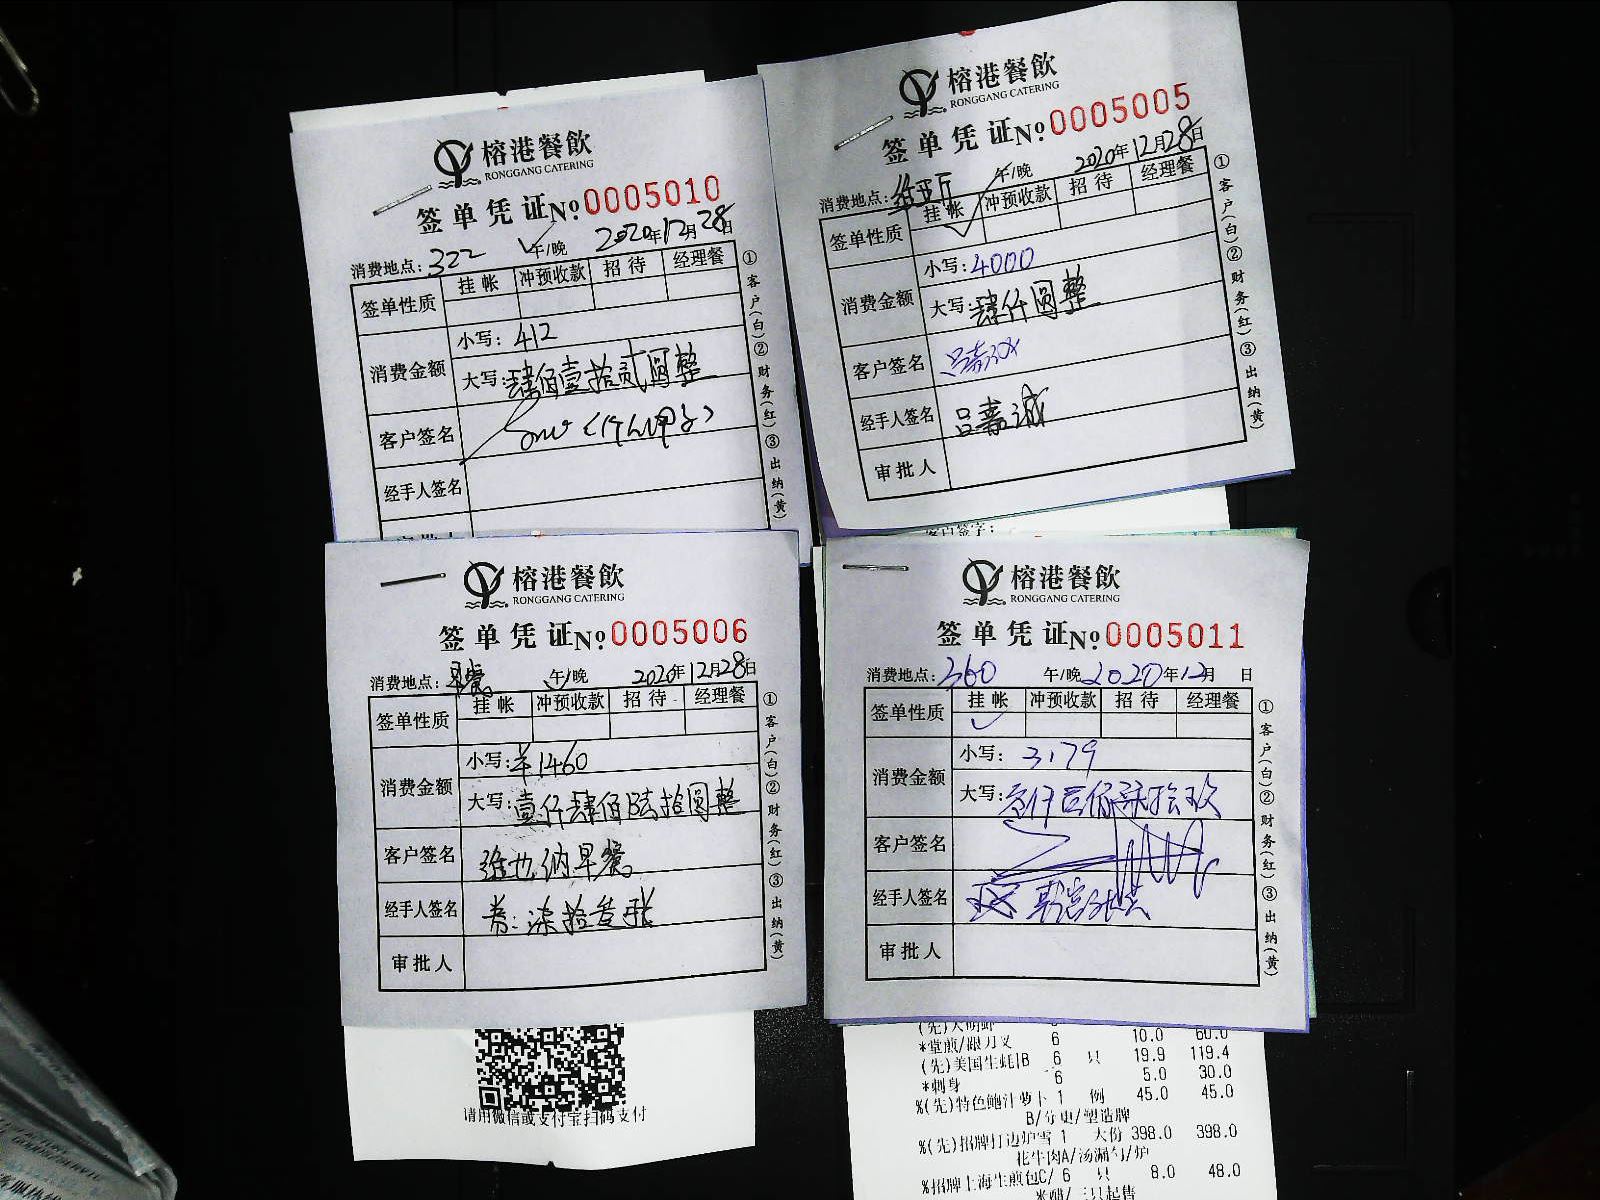 榕港餐飲
RONGGANG CATERING
签单凭证№0005010
消费地点:322 午/晚 2020年12月28日
签单性质 挂帐 冲预收款 招待 经理餐
消费金额 小写:412
大写:肆佰壹拾贰圆整
客户签名
经手人签名
①客户(白)②财务(红)③出纳(黄)
榕港餐飲
RONGGANG CATERING
签单凭证№0005005
消费地点: 午/晚 2020年12月28日
签单性质 挂帐 冲预收款 招待 经理餐
消费金额 小写:4000
大写:肆仟圆整
客户签名 吕嘉诚
经手人签名 吕嘉诚
审批人
①客户(白)②财务(红)③出纳(黄)
客户签字:
榕港餐飲
RONGGANG CATERING
签单凭证№0005006
消费地点:早餐 午/晚 2020年12月28日
签单性质 挂帐 冲预收款 招待 经理餐
消费金额 小写:¥1460
大写:壹仟肆佰陆拾圆整
客户签名 维也纳早餐
经手人签名 券:柒拾叁张
审批人
①客户(白)②财务(红)③出纳(黄)
请用微信或支付宝扫码支付
榕港餐飲
RONGGANG CATERING
签单凭证№0005011
消费地点:360 午/晚 2020年12月 日
签单性质 挂帐 冲预收款 招待 经理餐
消费金额 小写:3179
大写:叁仟壹佰柒拾玖
客户签名
经手人签名
审批人
①客户(白)②财务(红)③出纳(黄)
(先)大明虾
*堂煎/跟刀叉 6 10.0 60.0
(先)美国生蚝B 6 只 19.9 119.4
*刺身 6 5.0 30.0
%(先)特色鲍汁萝卜 1 例 45.0 45.0
B/分更/塑造牌
%(先)招牌打边炉雪 1 大份 398.0 398.0
花牛肉A/汤漏勺/炉
%招牌上海生煎包C/ 6 只 8.0 48.0
米醋/三只起售